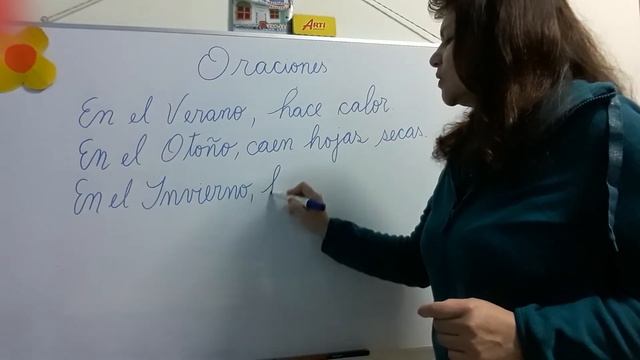 ARTI
Oraciones
En el Verano, hace calor.
En el Otoño, caen hojas secas.
En el Invierno,